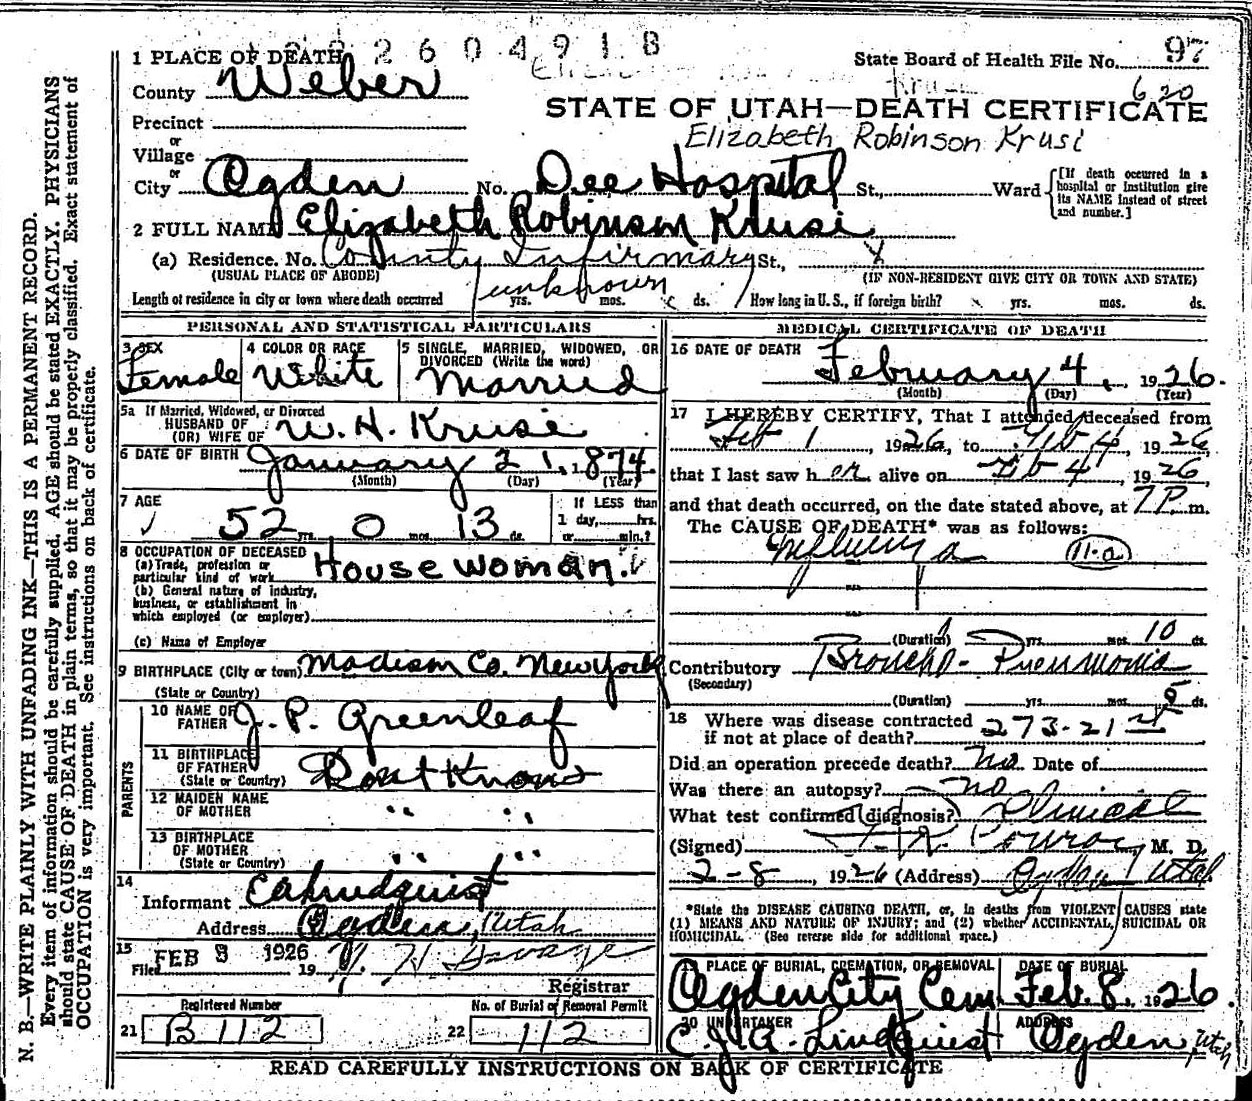 2604918
1 PLACE OF DEATH
State Board of Health File No. 97
County Weber
620
STATE OF UTAH—DEATH CERTIFICATE
Precinct
Elizabeth Robinson Krusi
or
Village
or
City Ogden No. Dee Hospital St., Ward
[If death occurred in a hospital or institution give its NAME instead of street and number.]
2 FULL NAME Elizabeth Robinson Krusi
(a) Residence. No. County Infirmary St.,
(USUAL PLACE OF ABODE) (IF NON-RESIDENT GIVE CITY OR TOWN AND STATE)
Length of residence in city or town where death occurred unknown yrs. mos. ds. How long in U. S., if foreign birth? yrs. mos. ds.
PERSONAL AND STATISTICAL PARTICULARS
3 SEX Female
4 COLOR OR RACE White
5 SINGLE, MARRIED, WIDOWED, OR DIVORCED (Write the word) Married
5a If Married, Widowed, or Divorced
HUSBAND OF
(OR) WIFE OF W. H. Krusi
6 DATE OF BIRTH January 21, 1874.
(Month) (Day) (Year)
7 AGE 52 yrs. 0 mos. 13 ds.
If LESS than
1 day, hrs.
or min.?
8 OCCUPATION OF DECEASED
(a) Trade, profession or
particular kind of work House woman.
(b) General nature of industry,
business, or establishment in
which employed (or employer)
(c) Name of Employer
9 BIRTHPLACE (City or town) Madison Co. New York
(State or Country)
PARENTS
10 NAME OF
FATHER J. P. Greenleaf
11 BIRTHPLACE
OF FATHER
(State or Country) Dont Know
12 MAIDEN NAME
OF MOTHER " "
13 BIRTHPLACE
OF MOTHER
(State or Country) " "
14
Informant
Address Ogden, Utah
15
Filed FEB 8 1926 19
Registrar
Registered Number
21 B 112
No. of Burial or Removal Permit
22 112
MEDICAL CERTIFICATE OF DEATH
16 DATE OF DEATH
February 4, 1926.
(Month) (Day) (Year)
17 I HEREBY CERTIFY, That I attended deceased from
Feb 1, 1926, to Feb 4, 1926,
that I last saw her alive on Feb 4, 1926,
and that death occurred, on the date stated above, at 7 P. m.
The CAUSE OF DEATH* was as follows:
Influenza 11-a
(Duration) yrs. mos. 10 ds.
Contributory Broncho-Pneumonia
(Secondary)
(Duration) yrs. mos. 5 ds.
18 Where was disease contracted
if not at place of death? 273-21st
Did an operation precede death? No Date of
Was there an autopsy? no
What test confirmed diagnosis? Clinical
(Signed) M. D.
2-8, 1926 (Address) Ogden Utah
*State the DISEASE CAUSING DEATH, or, in deaths from VIOLENT CAUSES state
(1) MEANS AND NATURE OF INJURY; and (2) whether ACCIDENTAL, SUICIDAL OR
HOMICIDAL. (See reverse side for additional space.)
PLACE OF BURIAL, CREMATION, OR REMOVAL Ogden City Cem
DATE OF BURIAL Feb. 8, 1926.
20 UNDERTAKER C. J. A. Lindquist
ADDRESS Ogden Utah
READ CAREFULLY INSTRUCTIONS ON BACK OF CERTIFICATE
N. B.—WRITE PLAINLY WITH UNFADING INK—THIS IS A PERMANENT RECORD.
Every item of information should be carefully supplied. AGE should be stated EXACTLY. PHYSICIANS
should state CAUSE OF DEATH in plain terms, so that it may be properly classified. Exact statement of
OCCUPATION is very important. See instructions on back of certificate.